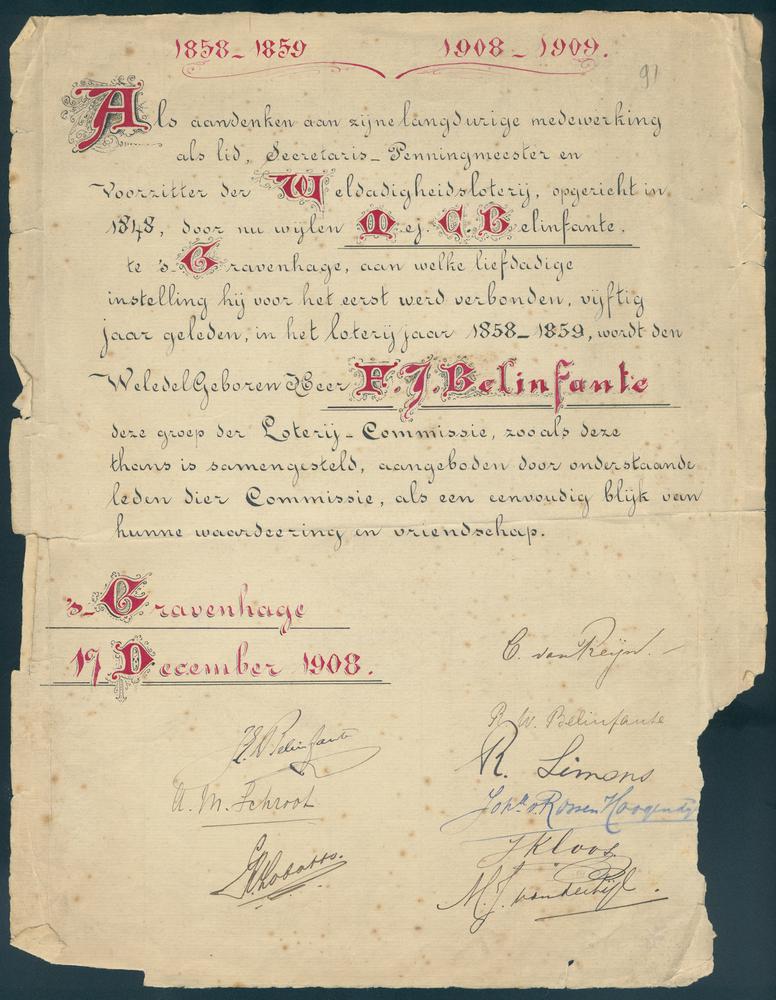 1858-1859 1908-1909.
91
Als aandenken aan zijne langdurige medewerking
als lid, Secretaris-Penningmeester en
Voorzitter der Weldadigheidsloterij, opgericht in
1848, door nu wijlen Mej. C. Belinfante.
te 's Gravenhage, aan welke liefdadige
instelling hij voor het eerst werd verbonden, vijftig
jaar geleden, in het loterij jaar 1858-1859, wordt den
WeledelGeboren Heer F. J. Belinfante
deze groep der Loterij-Commissie, zooals deze
thans is samengesteld, aangeboden door onderstaande
leden dier Commissie, als een eenvoudig blijk van
hunne waardeering en vriendschap.
's-Gravenhage
17 December 1908.
C. van Reijn.
Belinfante
R. W. Belinfante
A. M. Schroot
R. Simons
Joh. v Rossen Hoogendijk
J Kloos
M. J. van der Bijl.